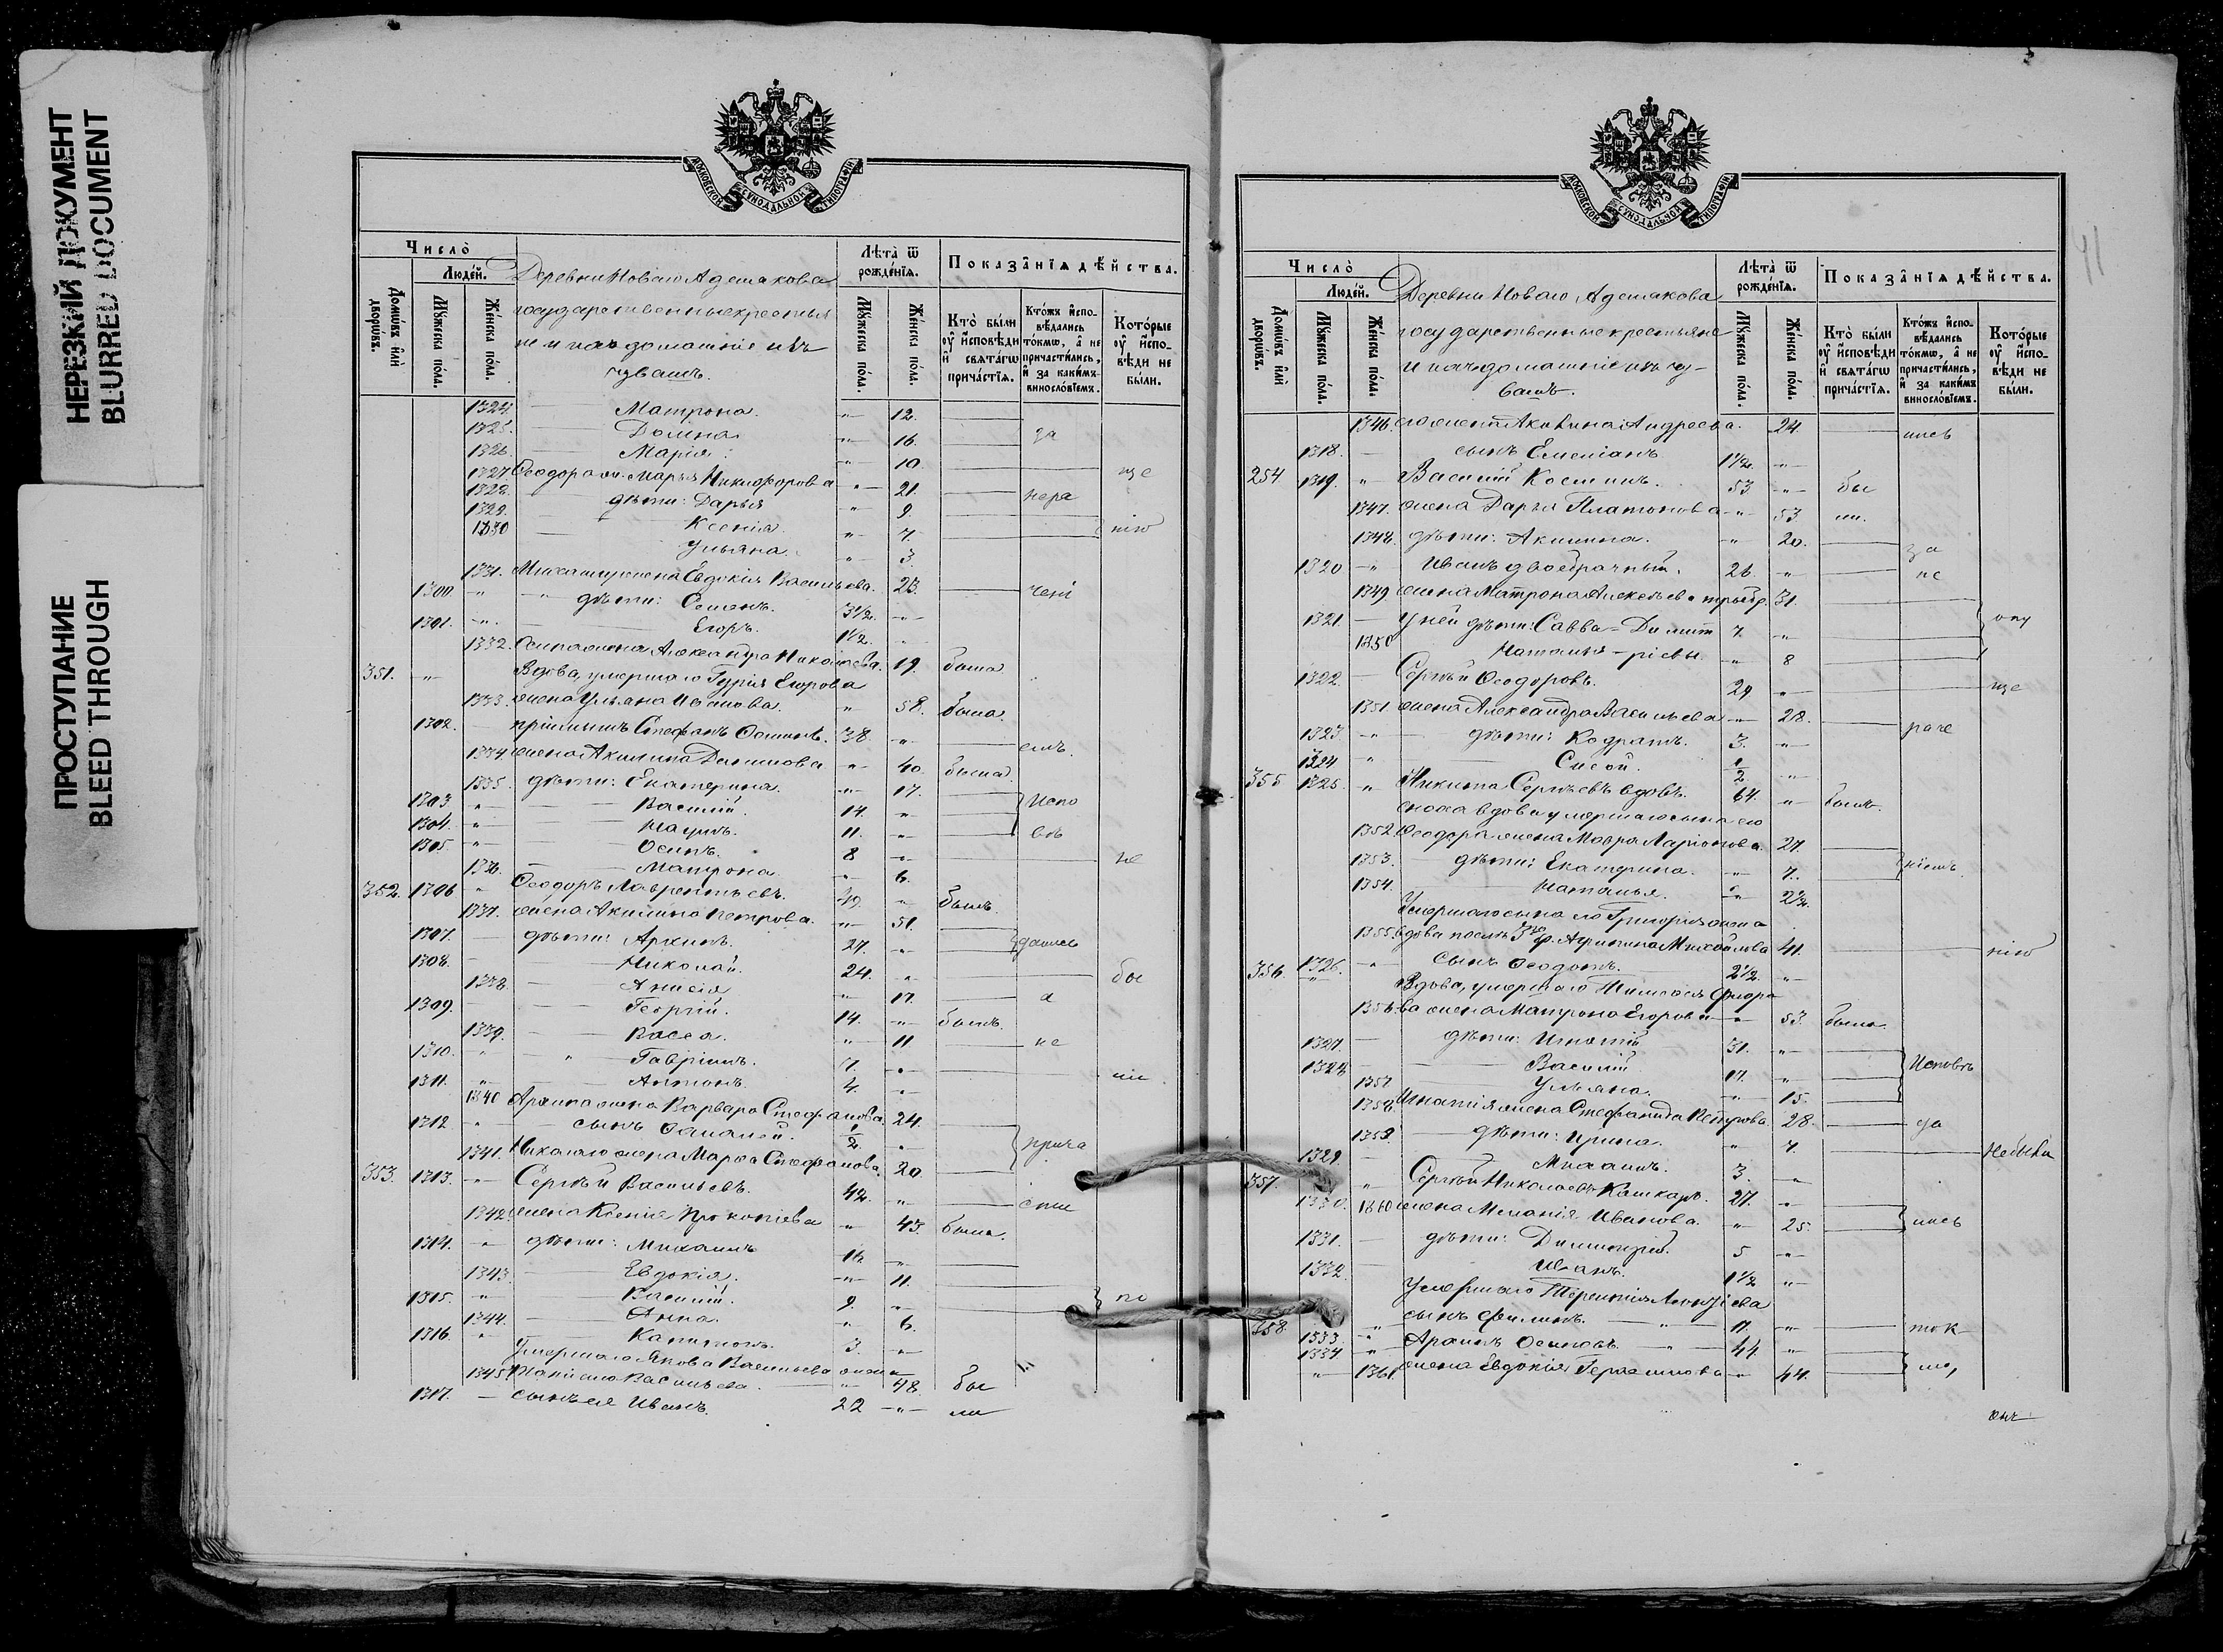 НЕРЕЗКИЙ ДОКУМЕНТ
BLURRED DOCUMENT
ПРОСТУПАНИЕ
BLEED THROUGH
МОСКОВСКОЙ СѴНОДАЛЬНОЙ ТИПОГРАФIИ
Число̀
Люде́й.
Домѡ́въ и҆лѝ дворѡ́въ.
Мꙋ́жеска по́ла.
Же́нска по́ла.
Деревни Новаго Адешакова
государственные крестья
не и ихъ домашніе изъ
чувашъ.
Лѣта̀ ѿ рожде́нїѧ.
Мꙋ́жеска по́ла.
Же́нска по́ла.
Показа̑нїѧ дѣ́йства.
Кто̀ бы́ли ᲂу҆ и҆сповѣ́ди и҆ свѧта́гѡ прича́стїѧ.
Кто́жъ и҆спо-вѣ́дались то́кмѡ, а҆ не причасти́лись, и҆ за каки́мъ винosло́вїемъ.
Кото́рые ᲂу҆ и҆спо-вѣ́ди не бы́ли.
1324. Матрона. " 12.
1325. Домна " 16. за
1326. Марія. " 10. ще
1327. Ѳеодора ж. Марья Никифорова " 21. нера
1328. дѣти: Дарья " 9.
1329. Ксенія. " 7. нію
1330 Ульяна. " 3.
1331. Михаила жена Евдокія Васильева. 23. чені
1300. " дѣти: Семенъ. 3½. "
1301. " Егоръ. 1½. "
1332. Осипа жена Александра Николаева. 19. была
351. " Вдова, умершаго Гурія Егорова
1333. жена Ульяна Иванова. " 58. была.
1302. пріимышъ Стефанъ Осиповъ. 38. " емъ.
1334. жена Акилина Данилова " 40. была.
1335. дѣти: Екатерина. " 17.
1303. " Василій. 14. " испо
1304. " Наумъ. 11. " вѣ
1305. " Осипъ. 8 " не
1336. Матрона " 6.
352. 1306 " Ѳеодоръ Лаврентьевъ. 49. " былъ.
1337. жена Акилина Петрова. " 51.
1307. дѣти: Архипъ. 27. " дались
1308. Николай. 24. " бы
1338. Анисія " 17. а
1309. Георгій. 14. " былъ.
1339. Васса. " 11 не
1310. " Гавріилъ. 7. " ли
1311. " Антонъ. 4. "
1340 Архипа жена Варвара Стефанова. 24.
1312. " сынъ ½ " прича
1341. Николая жена Марѳа Стефанова. 20.
353. 1313. " Сергѣй Васильевъ. 42. " сти
1342. жена Ксенія Прокопіева " 43. была.
1314. " дѣти: Михаилъ 16 "
1343. Евдокія. " 11.
1315. " Василій. 9. " по
1344. Анна. " 6.
1316. " Капитонъ. 3. "
Умершаго Якова Васильева жена
1345. Васильева. " 48. бы
1317. сынъ ея Иванъ. 22 " ли
МОСКОВСКОЙ СѴНОДАЛЬНОЙ ТИПОГРАФIИ
41
Число̀
Люде́й.
Домѡ́въ и҆лѝ дворѡ́въ.
Мꙋ́жеска по́ла.
Же́нска по́ла.
Деревни Новаго Адешакова
государственные крестьяне
и ихъ домашніе изъ чу-
вашъ.
Лѣта̀ ѿ рожде́нїѧ.
Мꙋ́жеска по́ла.
Же́нска по́ла.
Показа̑нїѧ дѣ́йства.
Кто̀ бы́ли ᲂу҆ и҆сповѣ́ди и҆ свѧта́гѡ прича́стїѧ.
Кто́жъ и҆спо-вѣ́дались то́кмѡ, а҆ не причасти́лись, и҆ за каки́мъ винosло́вїемъ.
Кото́рые ᲂу҆ и҆спо-вѣ́ди не бы́ли.
1346. его жена Андреева. 24. лись
1318. сынъ Емеліанъ. 1½. "
254 1319. " Василій Костинъ. 53. " бы
1347. жена Дарья Платонова " 53. ли.
1348. дѣти: Акилина. " 20. за
1320 " Иванъ двоебрачный. 26. " не
1349 жена Матрона Алексѣева 31.
1321. У ней дѣти: Савва - Димит 7. " опу
1350 Наталья - ріевы. " 8
1322. Сергѣй Ѳеодоровъ. 29 " ще
1351. жена Александра Васильева " 28. раче
1323 " дѣти: Кодратъ. 3. "
1324 " Сисой. ½ "
355 1325. " Никита Сергѣевъ вдовъ. 64. " былъ.
сноха вдова умершаго сына его
1352. Ѳеодора жена Мавра Ларіонова. 27.
1353. дѣти: Екатерина. " 7. ніемъ.
1354. Наталья. " 2½.
Умершаго сына его Григорія жена
1355. вдова послѣ Михайлова 41. нію
1326. " сынъ Ѳеодотъ. 2½. "
356. " Вдова, умершаго Тимоѳея Флоро
1356. ва жена Матрона Егорова " 53. была.
1327. дѣти: Игнатій 31. "
1328 Василій 17. " исповѣ
1357. Ульяна. " 15.
1358. Игнатія жена Стефанида Петрова. 28. да
1359. дѣти: Ирина. " 7. не были
1329. Михаилъ. 3. "
357. " Сергѣй Николаевъ Кашкаръ. 27. "
1330. 1360 жена Меланія Иванова. " 25. лись
1331. дѣти: Димитрій. 5 "
1332. Иванъ. 1½ "
Умершаго Терентія
" сынъ Филипъ. " 17. " ток
358. 1333. " Архипъ Осиповъ. " 44. "
1334. " 1361. жена Евдокія Герасимова " 44. мо,